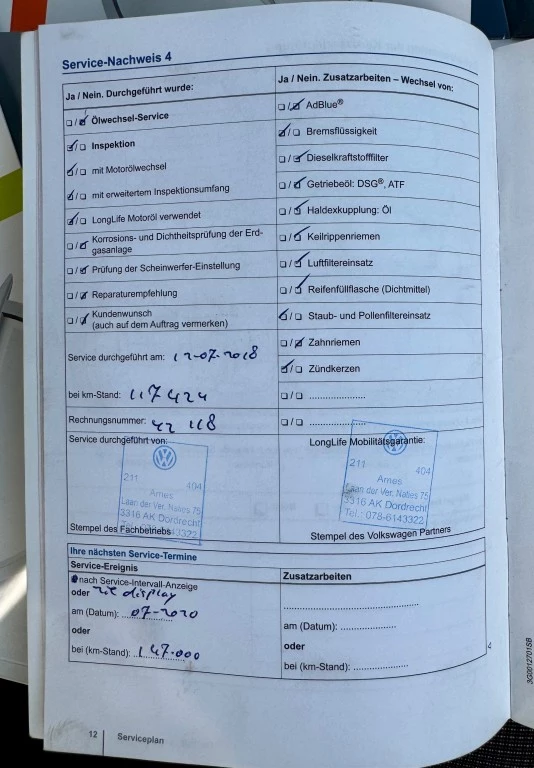 Service-Nachweis 4
Ja / Nein. Durchgeführt wurde:
Ölwechsel-Service
Inspektion
mit Motorölwechsel
mit erweitertem Inspektionsumfang
LongLife Motoröl verwendet
Korrosions- und Dichtheitsprüfung der Erd-
gasanlage
Prüfung der Scheinwerfer-Einstellung
Reparaturempfehlung
Kundenwunsch
(auch auf dem Auftrag vermerken)
Service durchgeführt am: 12-07-2018
bei km-Stand: 117424
Rechnungsnummer: 42 118
Service durchgeführt von:
211 404
Ames
Laan der Ver. Naties 75
3316 AK Dordrecht
Stempel des Fachbetriebs
Ja / Nein. Zusatzarbeiten – Wechsel von:
AdBlue®
Bremsflüssigkeit
Dieselkraftstofffilter
Getriebeöl: DSG®, ATF
Haldexkupplung: Öl
Keilrippenriemen
Luftfiltereinsatz
Reifenfüllflasche (Dichtmittel)
Staub- und Pollenfiltereinsatz
Zahnriemen
Zündkerzen
LongLife Mobilitätsgarantie:
211 404
Ames
Laan der Ver. Naties 75
3316 AK Dordrecht
Tel.: 078-6143322
Stempel des Volkswagen Partners
Ihre nächsten Service-Termine
Service-Ereignis
nach Service-Intervall-Anzeige
oder zie display
am (Datum): 07-2020
oder
bei (km-Stand): 147.000
Zusatzarbeiten
am (Datum):
oder
bei (km-Stand):
12 Serviceplan
3G0012701SB